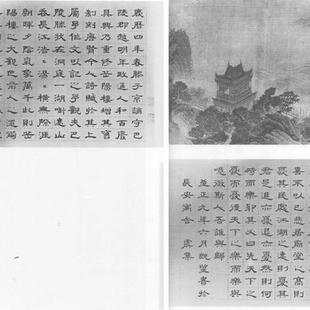 慶曆四年春滕子京謫守巴
陵郡越明年政通人和百廢
具興乃重修岳陽樓增其舊
制刻唐賢今人詩賦于其上
屬予作文以記之予觀夫巴
陵勝狀在洞庭一湖銜遠山
吞長江浩浩湯湯橫無際涯
朝暉夕陰氣象萬千此則岳
陽樓之大觀也前人之述備
喜不以己悲居廟堂之高則
憂其民處江湖之遠則憂其
君是進亦憂退亦憂然則何
時而樂耶其必曰先天下之
憂而憂後天下之樂而樂與
噫微斯人吾誰與歸
至正九年六月既望書於
長安寓舍 虞集